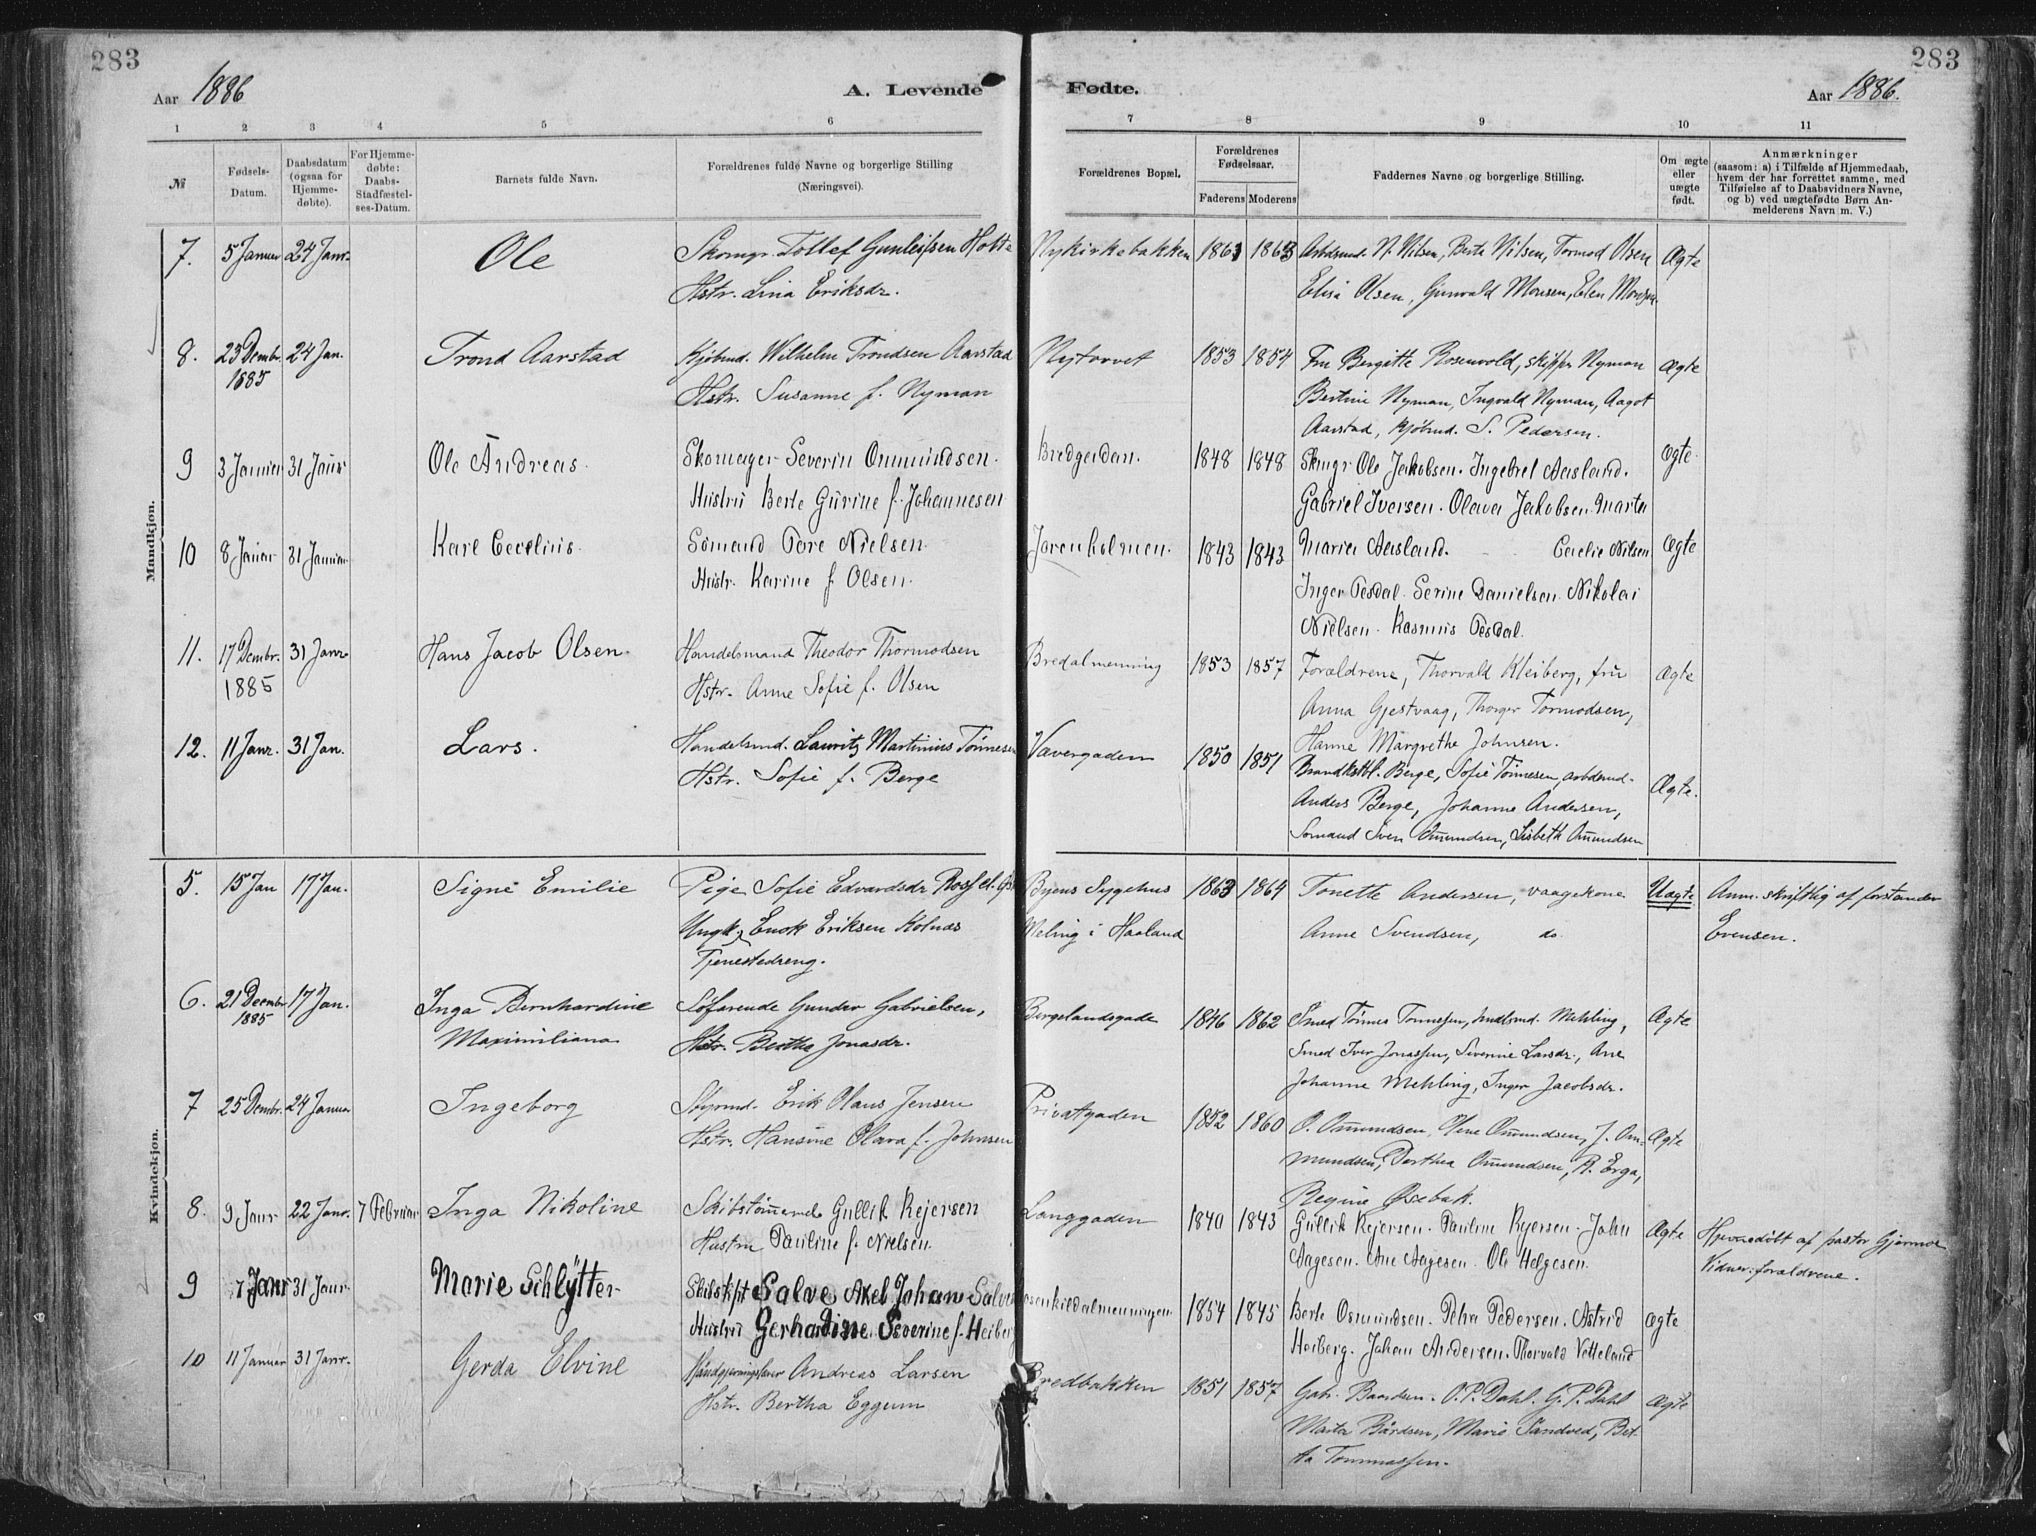 283
283
Aar 1886
A. Levende
Fødte.
Aar 1886.
1 2 3 4 5 6 7 8 9 10 11
№
Fødsels-Datum.
Daabsdatum (ogsaa for Hjemme-døbte).
For Hjemme-døbte: Daabs-Stadfæstel-ses-Datum.
Barnets fulde Navn.
Forældrenes fulde Navne og borgerlige Stilling (Næringsvei).
Forældrenes Bopæl.
Forældrenes Fødselsaar.
Faderens Moderens
Faddernes Navne og borgerlige Stilling.
Om ægte eller uægte født.
Anmærkninger (saasom: a) i Tilfælde af Hjemmedaab, hvem der har forrettet samme, med Tilføielse af to Daabsvidners Navne, og b) ved uægtefødte Børn An-melderens Navn m. V.)
Mandkjøn.
7. 5 Januar 24 Janr. Ole Skomgr. Tollef Gunleifsen Hotte Nykirkebakken 1861 1863 Arbdsmd. N. Nilsen, Berta Nilsen, Tormod Olsen Ægte
Hstr. Lina Eriksdr. Elisa Olsen, Gunvald Monsen, Elen Monsen
8. 23 Dembr. 24 Jan. Trond Aarstad Kjøbmd. Wilhelm Trondsen Aarstad Nytorvet 1853 1854 Fru Bergitte Rosenvold, skipper Nyman Ægte
1885 Hstr. Susanne f. Nyman Bertine Nyman, Ingvald Nyman, Aagot
Aarstad, kjøbmd. S. Pedersen.
9 3 Januar 31 Janr Ole Andreas. Skomager Severin Ommundsen. Bredgadan. 1848 1848 Skmgr Ole Jakobsen. Ingebret Aasland. Ægte.
Hustru Berte Gurine f. Johannesen Gabriel Iversen. Olava Jakobsen. Marta
10 8 Januar 31 Januar Karl Cecelius. Sømand Tore Nielsen. Jorenholmen. 1843 1843 Maria Aasland. Cecelie Nilsen Ægte
Hustr. Karine f. Olsen. Inger Tesdal. Serine Danielsen. Nikolai
Nielsen. Rasmus Tesdal.
11. 17 Dembr. 31 Janr Hans Jacob Olsen. Handelsmand Theodor Thormodsen Bredalmenning 1853 1857 Forældrene, Thorvald Kleiberg, fru Ægte
1885 Hstr. Anne Sofie f. Olsen Anna Gjestvaag, Thorger Tormodsen,
Hanne Margrethe Johnsen.
12. 11 Janr. 31 Jan. Lars. Handelsmd. Lauritz Martinius Tønnesen Vævergaden 1850 1851 Brandkstbl. Berge, Sofie Tønnesen, arbdsmd. Ægte.
Hstr. Sofie f. Berge Anders Berge, Johanne Andersen,
Sømand Sven Omundsen, Lisbeth Omundsen
Kvindekjøn.
5. 15 Jan 17 Jan. Signe Emilie Pige Sofie Edvardsdr Byens Sygehus 1863 1864 Tonette Andersen, vaagekone Uægte Anm. skriftlig af forstander
Ungk. Enok Eriksen Kolnæs Meling i Haaland Anne Svendsen, do. Evensen.
Tjenestedreng.
6. 21 Decembr 17 Jan. Inga Bernhardine Søfarende Gunder Gabrielsen, Bergelandsgade 1846 1862 Smed Tønnes Tonnessen, hndlsmd. Mehling, Ægte
1885 Maximiliana Hstr. Bertha Jonasdr. Smed Iver Jonassen, Severine Larsdr., Ane
Johanne Mehling, Inger Jacobsdr.
7 25 Dembr. 24 Januar Ingeborg Styrmd. Erik Olaus Jensen Privatgaden 1852 1860 O. Ommundsen, Ommundsen, J. Om- Ægte
Hstr. Hansine Olava f. Johnsen mundsen, Dorthea Ommundsen, R. Erga,
Regine Øsebak.
8. 9 Janr 22 Janr. 7 Februar Inga Nikoline Skibstømmermd. Gullik Rejersen Langgaden 1840 1843 Gullik Rejersen. Pauline Rejersen. John Ægte Hjemmedøbt af pastor Gjermoe
Hustru Pauline f. Nielsen. Aagesen. Ane Aagesen. Ole Helgesen. Vidner: forældrene.
9 7 Janr 31 Janr Marie Schlytter Skibskpt Salve Axel Johan Salve Rosenkildalmenningen 1854 1845 Berte Osmundsen. Petra Pedersen. Astrid Ægte
Hustru Gerhardine Severine f. Heiberg Heiberg. Johan Andersen. Thorvald Vetteland
10 11 Januar 31 Janr. Gerda Elvine Haandgjerningslærer Andreas Larsen Bredbakken 1851 1857 Gab. Baardsen. O. P. Dahl. G. P. Dahl Ægte
Hstr. Bertha Eggum Marta Bårdsen, Marie Sandved, Ber-
ta Tommassen.